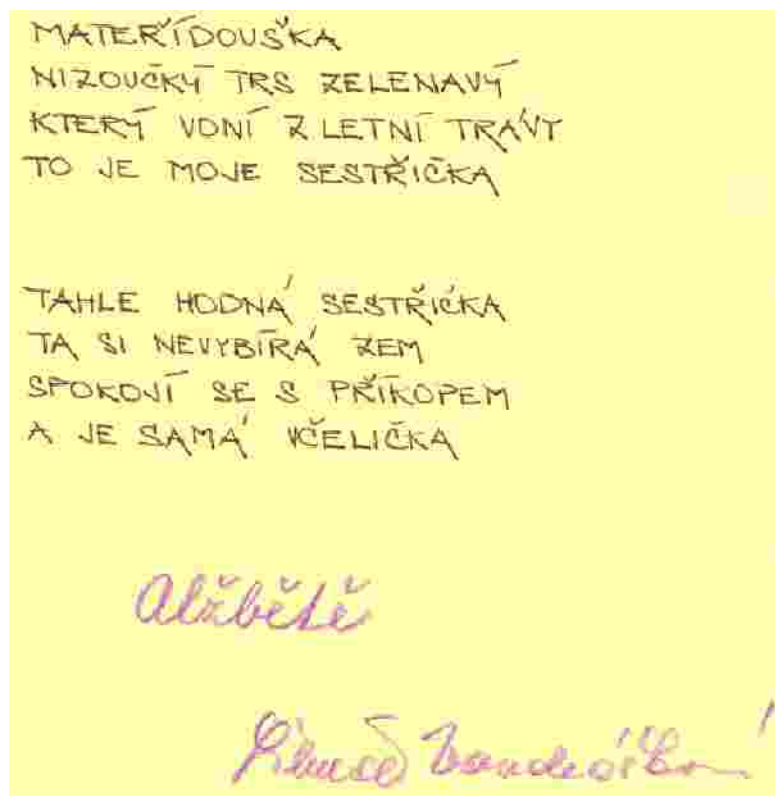 MATEŘÍDOUŠKA
NIZOUČKÝ TRS ZELENAVÝ
KTERÝ VONÍ Z LETNÍ TRÁVY
TO JE MOJE SESTŘIČKA
TAHLE HODNÁ SESTŘIČKA
TA SI NEVYBÍRÁ ZEM
SPOKOJÍ SE S PŘÍKOPEM
A JE SAMÁ VČELIČKA
Alžbětě